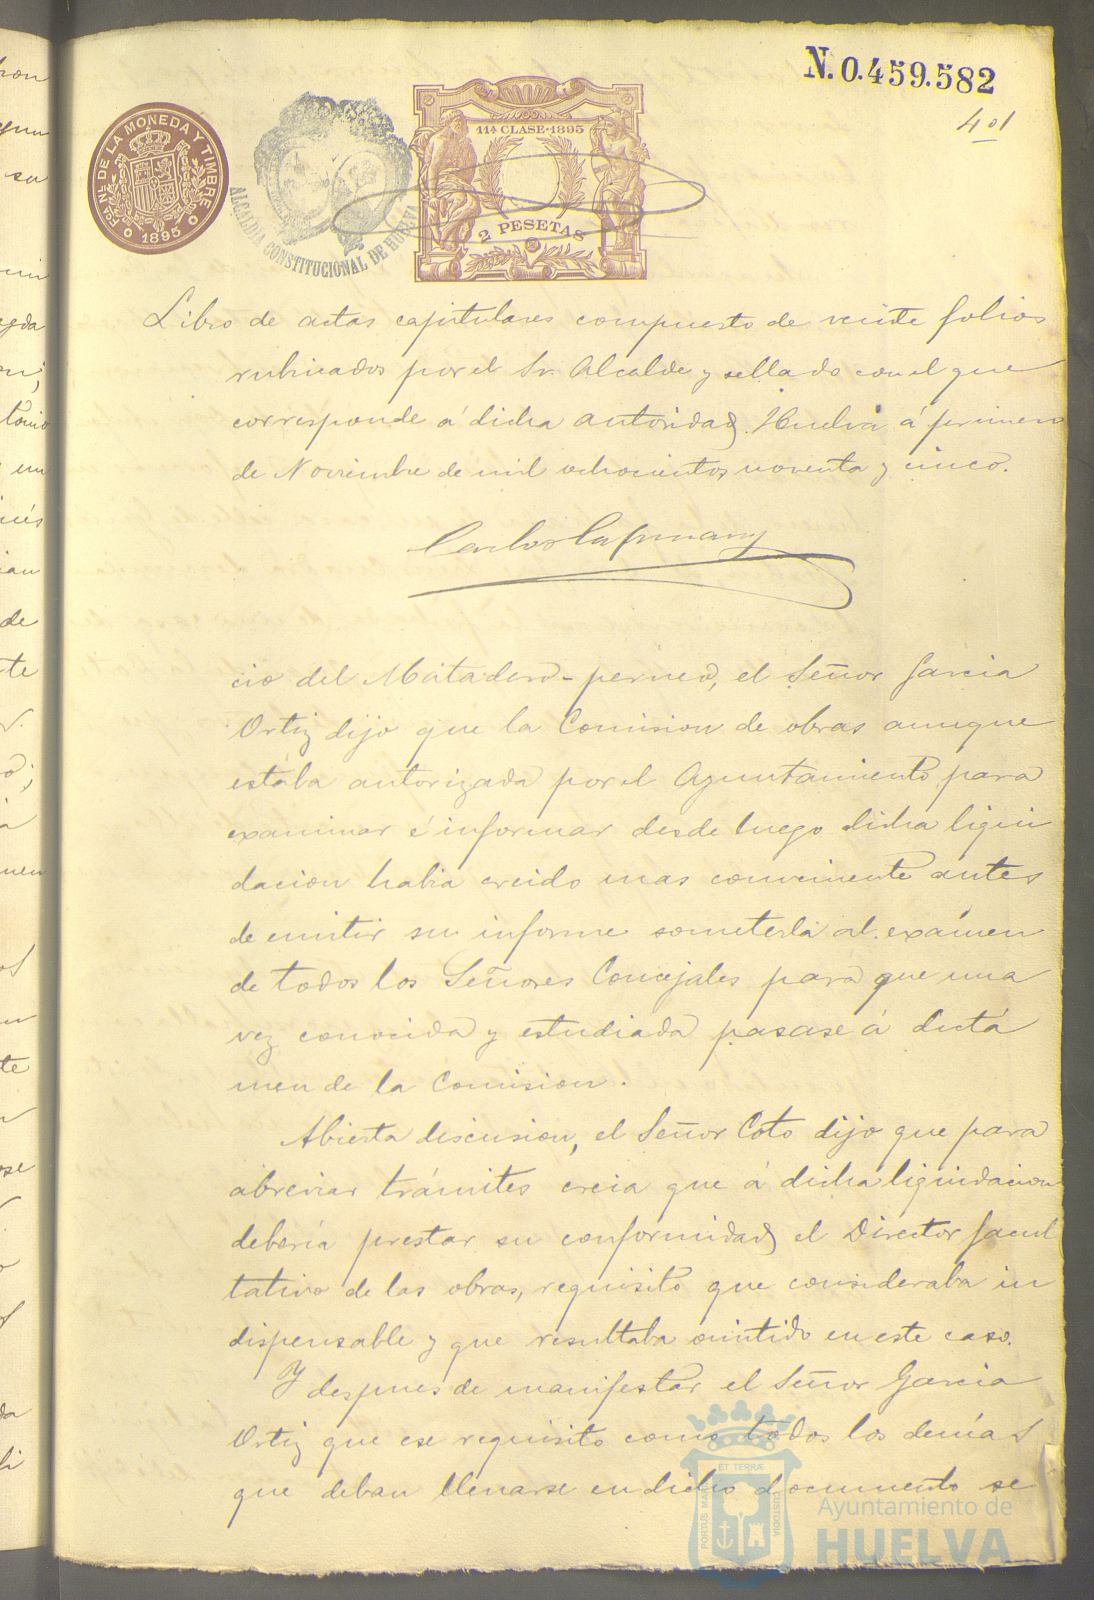 N. 0.459.582
401
Fca. Nl. DE LA MONEDA Y TIMBRE
1895
ALCALDIA CONSTITUCIONAL DE HUELVA
11ª CLASE·1895
2 PESETAS
Libro de actas capitulares compuesto de veinte folios
rubricados por el Sr. Alcalde y sellado con el que
corresponde á dicha autoridad. Huelva á primero
de Noviembre de mil ochocientos noventa y cinco.
Carlos
cio del Matadero-perneo, el Señor Garcia
Ortiz dijo que la Comision de obras aunque
estába autorizada por el Ayuntamiento para
examinar é informar desde luego dicha liqui
dacion habia creido mas conveniente antes
de emitir su informe someterla al exámen
de todos los Señores Concejales para que una
vez conocida y estudiada pasase á dictá
men de la Comision.
Abierta discusion, el Señor Coto dijo que para
abreviar trámites creia que á dicha liquidacion
debería prestar su conformidad el Director facul
tativo de las obras, requisito que consideraba in
dispensable y que resultaba omitido en este caso.
Y despues de manifestar el Señor Garcia
Ortiz que ese requisito como todos los demás
que deban llenarse en dicho documento se
PORTUS MARIS ET TERRÆ CUSTODIA
Ayuntamiento de
HUELVA